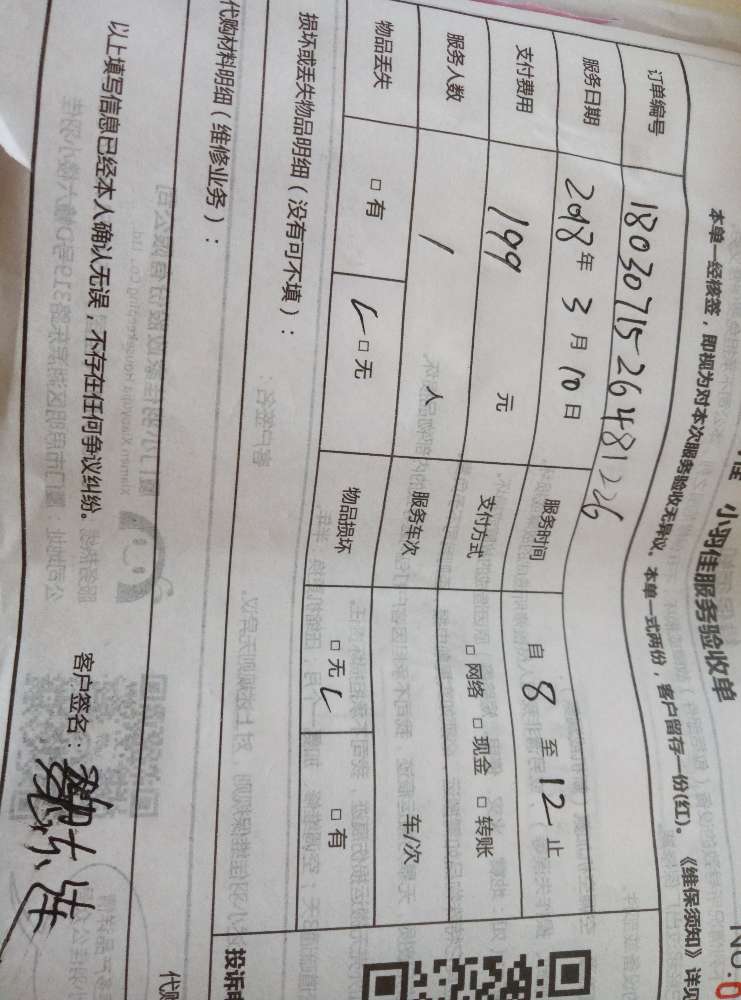 No.0
小羽佳服务验收单
本单一经核签，即视为对本次服务验收无异议。本单一式两份，客户留存一份(红)。《维保须知》详见
订单编号 1803071526481226
服务日期 2018年3月10日 服务时间 自8至12止
支付费用 199元 支付方式 □网络 □现金 □转账
服务人数 1人 服务车次 车/次
物品丢失 □有 □无 物品损坏 □无 □有
损坏或丢失物品明细（没有可不填）：
代购材料明细（维修业务）：
投诉
代购
以上填写信息已经本人确认无误，不存在任何争议纠纷。 客户签名：